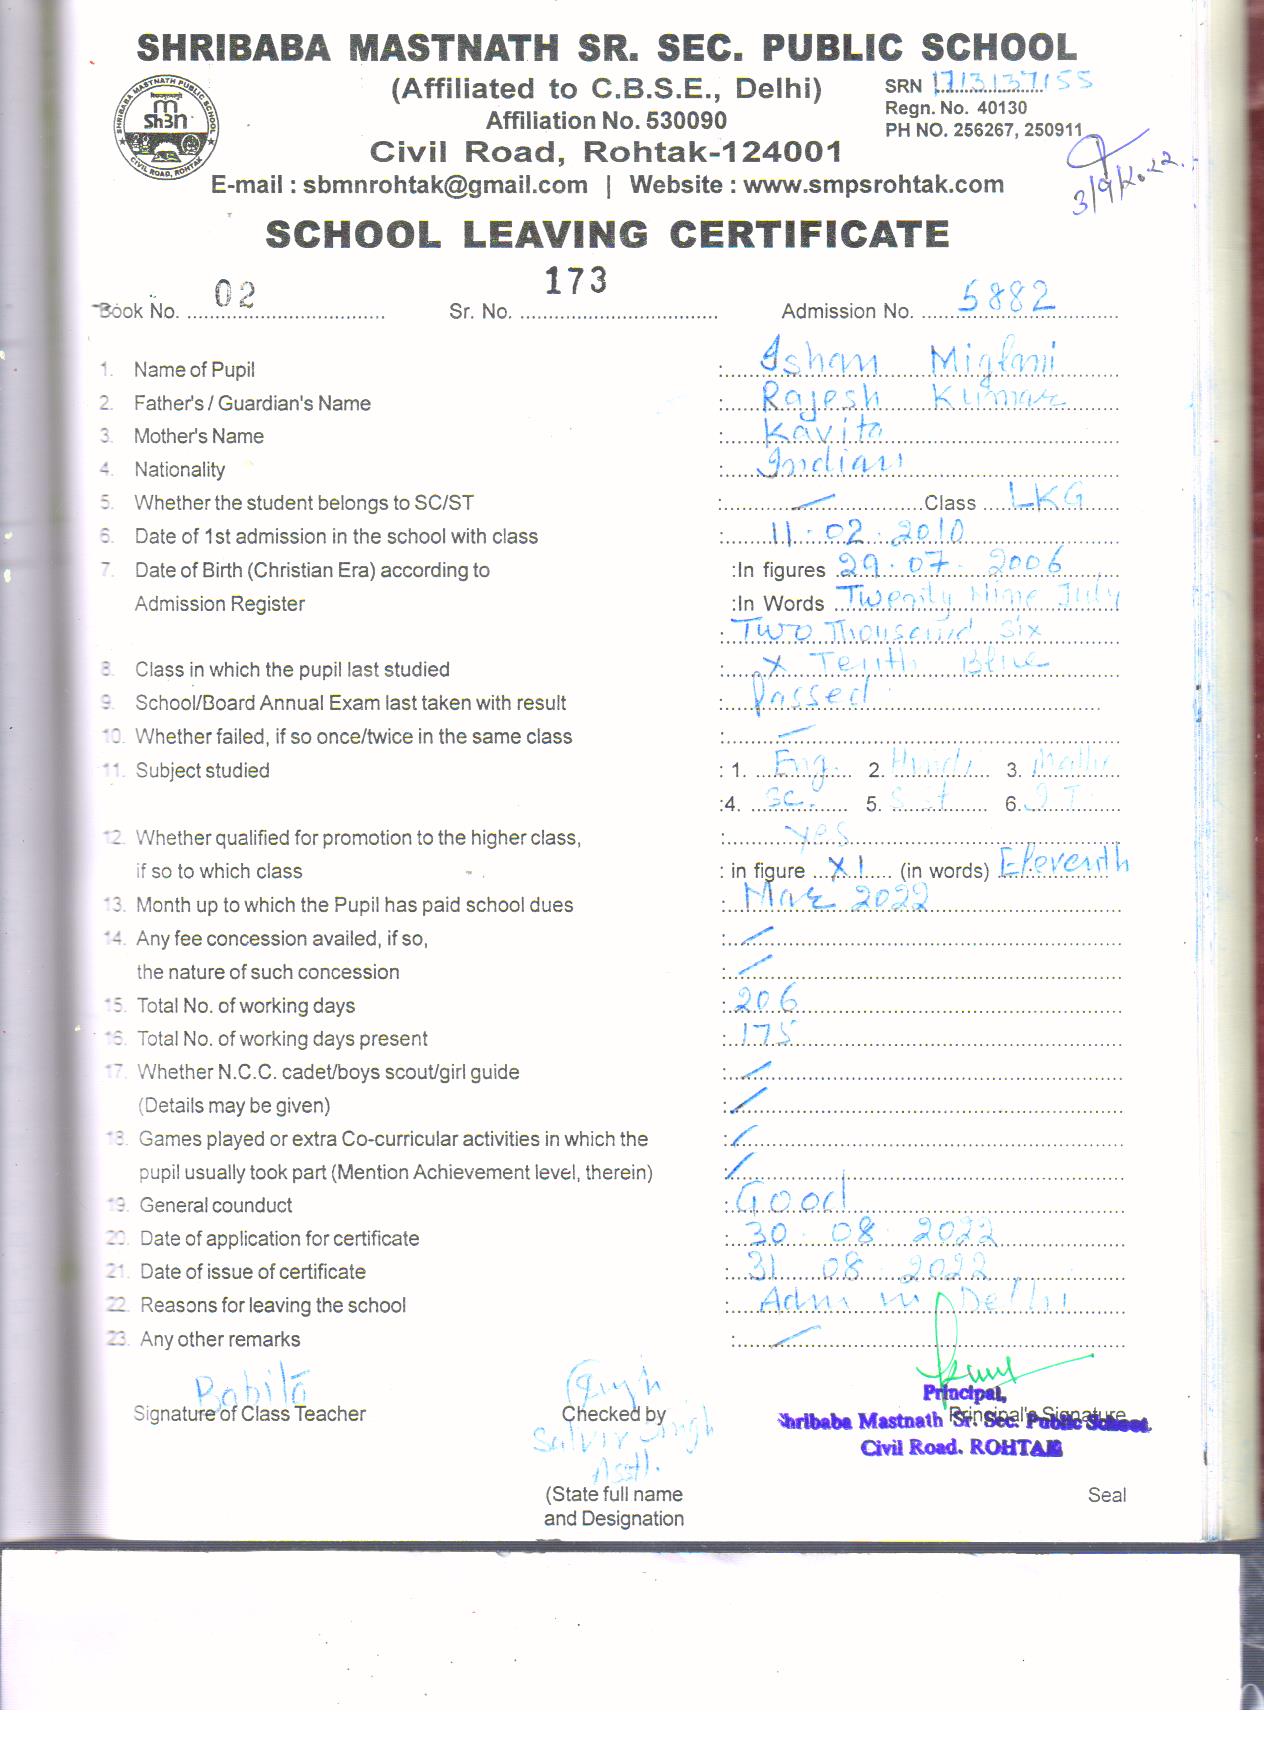 SHRIBABA MASTNATH SR. SEC. PUBLIC SCHOOL
(Affiliated to C.B.S.E., Delhi)
SRN 1713137155
Affiliation No. 530090
Regn. No. 40130
PH NO. 256267, 250911
Civil Road, Rohtak-124001
E-mail : sbmnrohtak@gmail.com | Website : www.smpsrohtak.com
SHRIBABA MASTNATH PUBLIC SCHOOL
CIVIL ROAD, ROHTAK
SCHOOL LEAVING CERTIFICATE
Book No. 02 Sr. No. 173 Admission No. 5882
1. Name of Pupil : Isham Miglani
2. Father's / Guardian's Name : Rajesh Kumar
3. Mother's Name : Kavita
4. Nationality : Indian
5. Whether the student belongs to SC/ST : Class LKG
6. Date of 1st admission in the school with class : 11.02.2010
7. Date of Birth (Christian Era) according to :In figures 29.07.2006
Admission Register :In Words Twenty Nine July
: Two Thousand Six
8. Class in which the pupil last studied : X Tenth Blue
9. School/Board Annual Exam last taken with result : Passed
10. Whether failed, if so once/twice in the same class :
11. Subject studied : 1. Eng. 2. Hindi 3. Maths
:4. Sc. 5. S.st 6. I T
12. Whether qualified for promotion to the higher class, : yes
if so to which class : in figure XI (in words) Eleventh
13. Month up to which the Pupil has paid school dues : Mar 2022
14. Any fee concession availed, if so, :
the nature of such concession :
15. Total No. of working days : 206
16. Total No. of working days present : 175
17. Whether N.C.C. cadet/boys scout/girl guide :
(Details may be given) :
18. Games played or extra Co-curricular activities in which the :
pupil usually took part (Mention Achievement level, therein) :
19. General counduct : Good
20. Date of application for certificate : 30.08.2022
21. Date of issue of certificate : 31 08.2022
22. Reasons for leaving the school : Adm in Delhi
23. Any other remarks :
Babita
Signature of Class Teacher Checked by Principal's Signature
Principal,
Shribaba Mastnath Sr. Sec. Public School
Civil Road. ROHTAK
Satvir Singh
Asstt.
(State full name Seal
and Designation